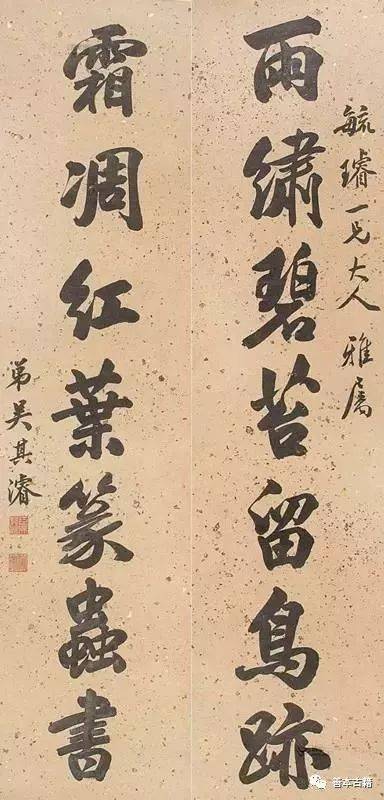 毓璿一兄大人雅属
雨繡碧苔留鳥跡
霜凋紅葉篆蟲書
弟吴其濬
善本古籍